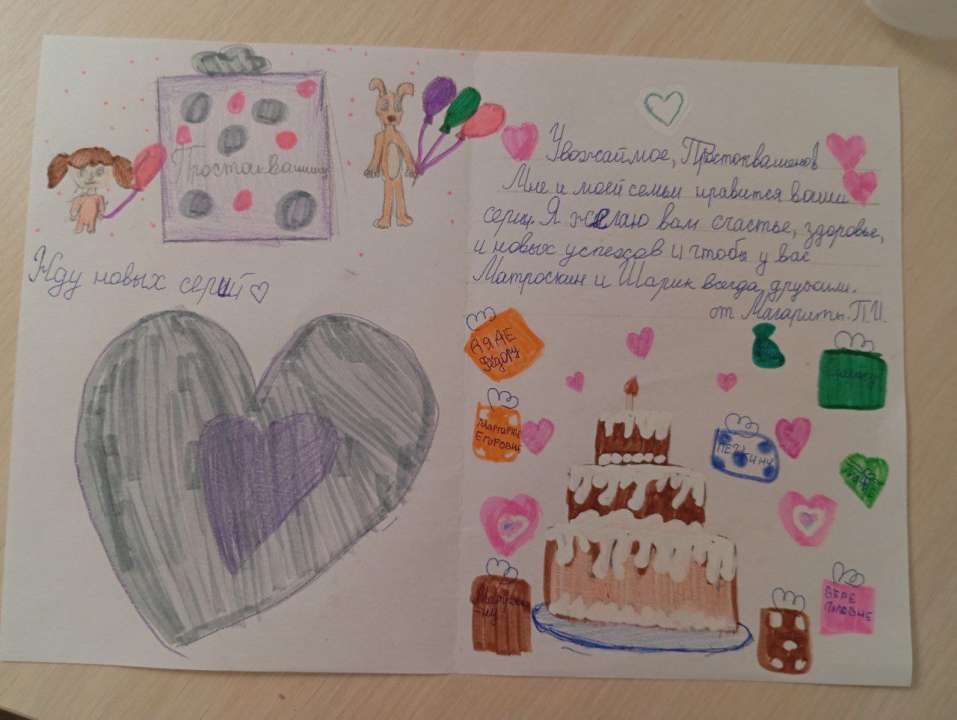 Простоквашино
Жду новых серий
Уважаймое, Простоквашенов
Мне и моей семьи нравится ваши
серии. Я желаю вам счастье, здоровье,
и новых успехов и чтобы у вас
Матроскин и Шарик всегда дружили.
от Магариты. П.И.
ДЯДЕ
ФЁДОРУ
МАРГАРИТЕ
ЕГОРОВНЕ
ПЕЧКИНУ
ВЕРЕ
ПАВЛОВНЕ